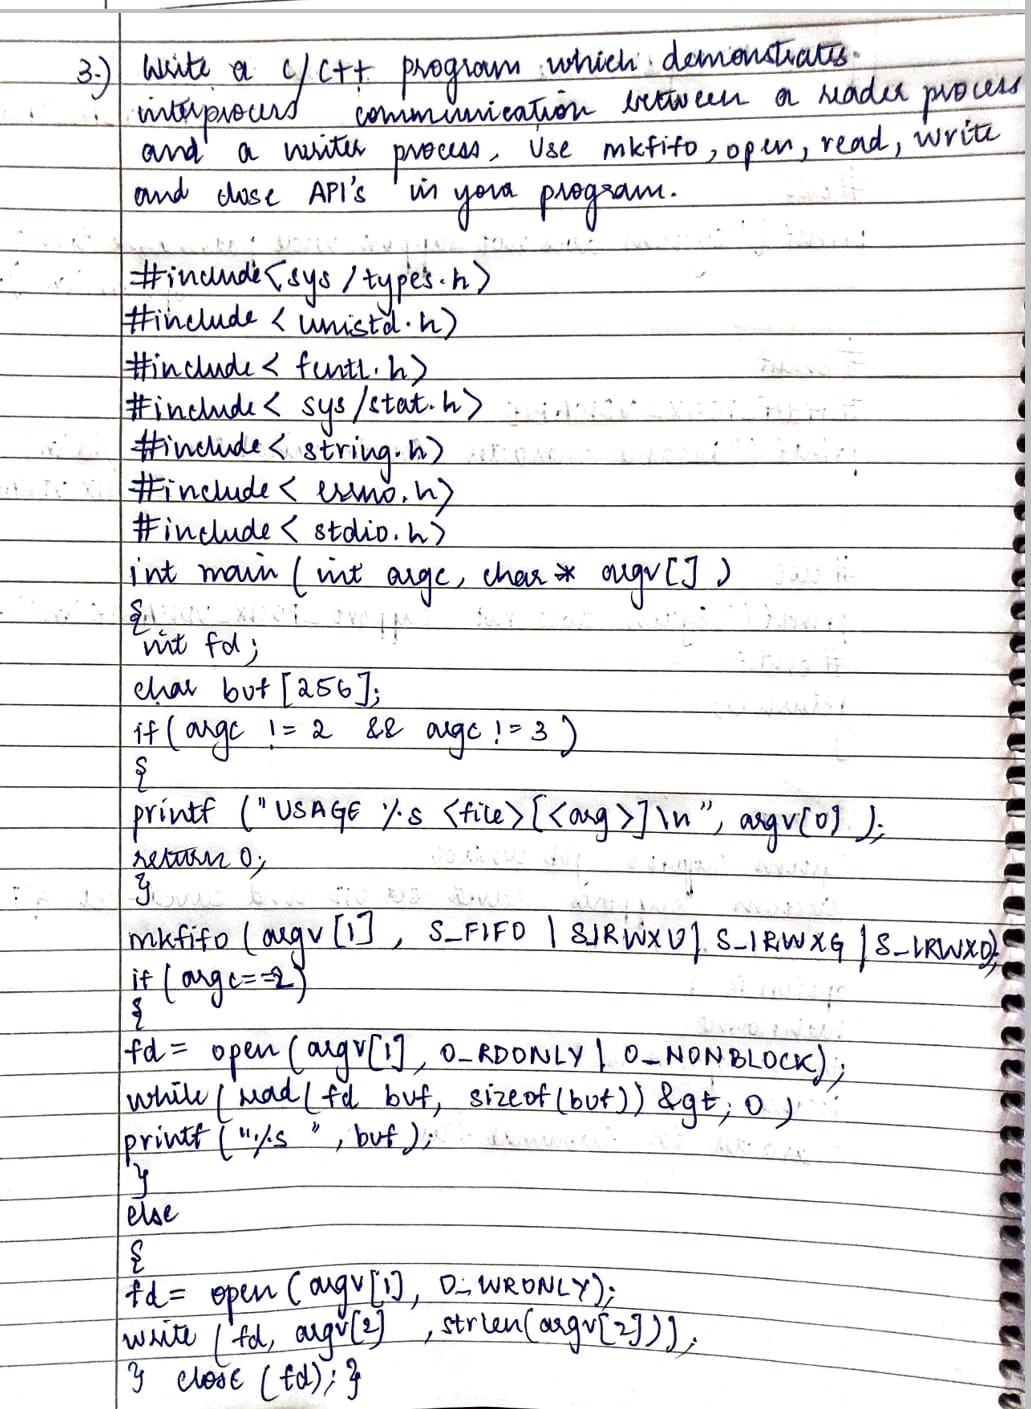 3.) Write a c/c++ program which demonstrates
interprocess communication between a reader process
and a writer process, Use mkfifo, open, read, write
and close API's in your program.
#include<sys/types.h>
#include<unistd.h>
#include<fcntl.h>
#include<sys/stat.h>
#include<string.h>
#include<errno.h>
#include<stdio.h>
int main (int argc, char* argv[])
{
int fd;
char buf[256];
if(argc != 2 && argc != 3)
{
printf ("USAGE %s <file>[<arg>]\n", argv[0]);
return 0;
}
mkfifo (argv[1], S_FIFO | S_IRWXU | S_IRWXG | S_IRWXO);
if (argc==2)
{
fd = open(argv[1], O_RDONLY | O_NONBLOCK);
while (read(fd buf, sizeof(buf)) &gt; 0)
printf ("%s", buf);
}
else
{
fd = open(argv[1], O_WRONLY);
write (fd, argv[2], strlen(argv[2]));
} close (fd); }